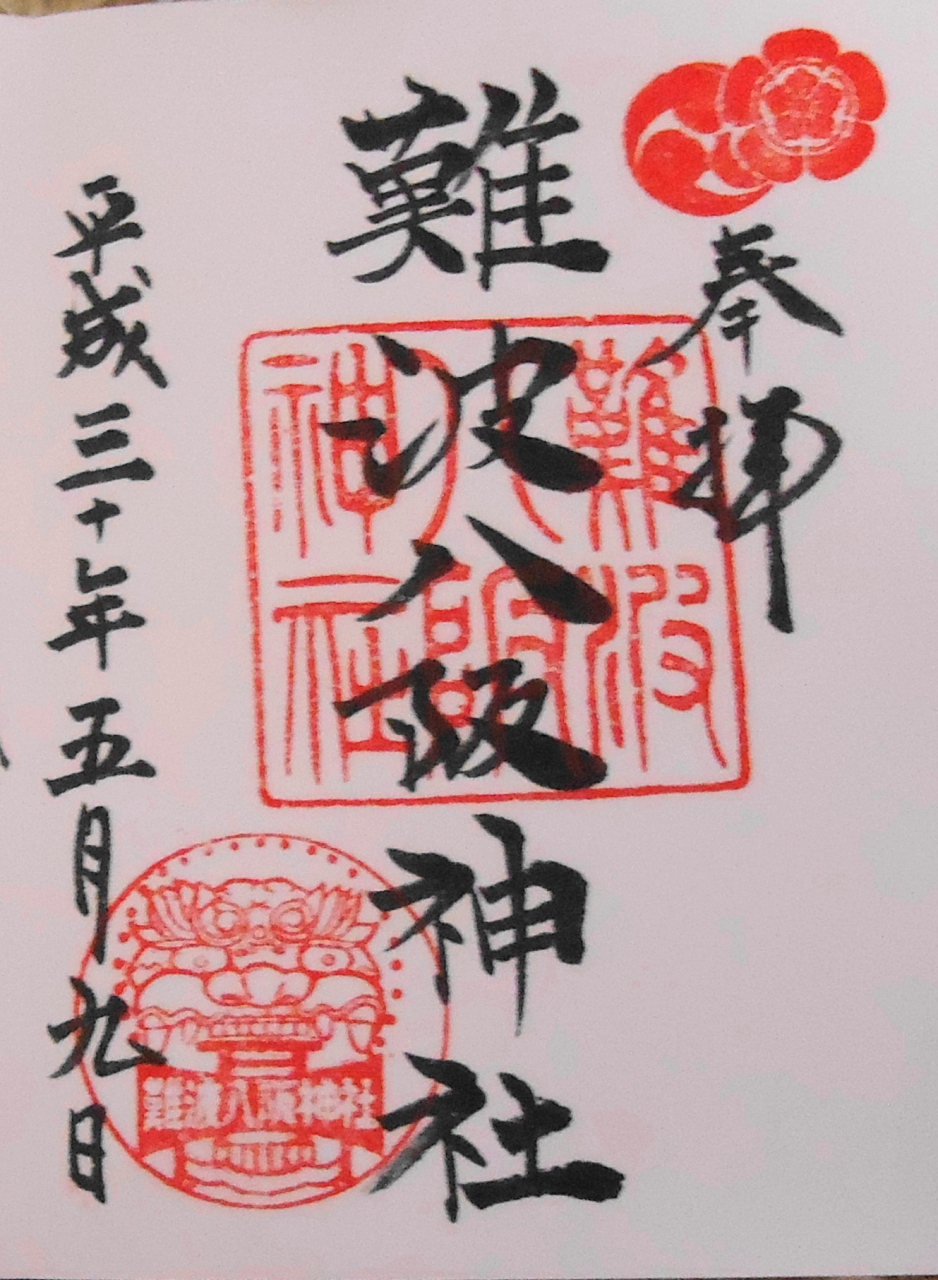 奉拝
難波八阪神社
難波
八阪
神社
平成三十年五月九日
難波八阪神社